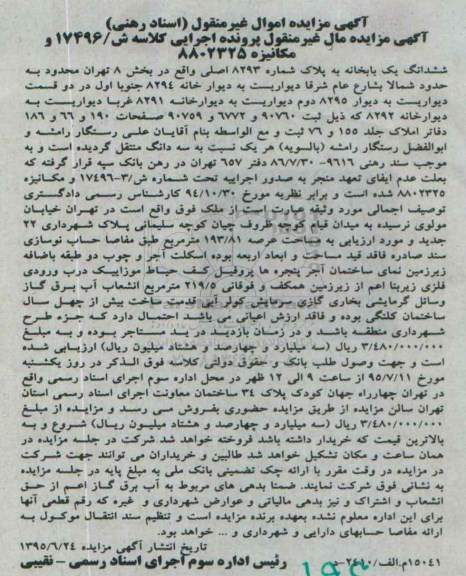 آگهی مزایده اموال غیرمنقول (اسناد رهنی)
آگهی مزایده مال غیرمنقول پرونده اجرایی کلاسه ش/۱۷۴۹۶ و
مکانیزه ۸۸۰۲۳۲۵
ششدانگ یک بابخانه به پلاک شماره ۸۲۹۳ اصلی واقع در بخش ۸ تهران محدود به
حدود شمالا بشارع عام شرقا دیواریست به دیوار خانه ۸۲۹۴ جنوبا اول در دو قسمت
دیواریست به دیوار ۸۲۹۵ دوم دیواریست به دیوارخانه ۸۲۹۱ غربا دیواریست به
دیوارخانه ۸۲۹۲ که ذیل ثبت ۹۰۷۶۰ و ۶۷۷۲ و ۹۰۷۵۹ صفحات ۱۹۰ و ۶۶ و ۱۸۶
دفاتر املاک جلد ۱۵۵ و ۷۶ ثبت و مع الواسطه بنام آقایان علی رستگار رامشه و
ابوالفضل رستگار رامشه (بالسویه) هر یک نسبت به سه دانگ منتقل گردیده است و به
موجب سند رهنی ۹۶۱۶- ۸۶/۷/۳۰ دفتر ۶۵۷ تهران در رهن بانک سپه قرار گرفته که
بعلت عدم ایفای تعهد منجر به صدور اجراییه تحت شماره ش/۳-۱۷۴۹۶ و مکانیزه
۸۸۰۲۳۲۵ شده است و برابر نظریه مورخ ۹۴/۱۰/۳۰ کارشناس رسمی دادگستری
توصیف اجمالی مورد وثیقه عبارت است از ملک فوق واقع است در تهران خیابان
مولوی نرسیده به میدان قیام کوچه ظروف چیان کوچه سلیمانی پلاک شهرداری ۲۲
جدید و مورد ارزیابی به مساحت عرصه ۱۹۳/۸۱ مترمربع طبق مفاصا حساب نوسازی
سند صادره فاقد قید مساحت و ابعاد اربعه بوده اسکلت آجر و چوب دو طبقه باضافه
زیرزمین نمای ساختمان آجر پنجره ها پروفیل کف حیاط موزاییک درب ورودی
فلزی زیربنا اعم از زیرزمین همکف و فوقانی ۲۱۹/۵ مترمربع انشعاب آب برق گاز
وسائل گرمایشی بخاری گازی سرمایش کولر آبی قدمت ساخت بیش از چهل سال
ساختمان کلنگی بوده و فاقد ارزش اعیانی می باشد احتمال دارد که جزء طرح
شهرداری منطقه باشد و در زمان بازدید در ید مستاجر بوده و به مبلغ
۳/۴۸۰/۰۰۰/۰۰۰ ریال (سه میلیارد و چهارصد و هشتاد میلیون ریال) ارزیابی شده
است و جهت وصول طلب بانک و حقوق دولتی کلاسه فوق الذکر در روز یکشنبه
مورخ ۹۵/۷/۱۱ از ساعت ۹ الی ۱۲ ظهر در محل اداره سوم اجرای اسناد رسمی واقع
در تهران چهارراه جهان کودک پلاک ۳۴ ساختمان معاونت اجرای اسناد رسمی استان
تهران سالن مزایده از طریق مزایده حضوری بفروش می رسد و مزایده از مبلغ
۳/۴۸۰/۰۰۰/۰۰۰ ریال (سه میلیارد و چهارصد و هشتاد میلیون ریال) شروع و به
بالاترین قیمت که خریدار داشته باشد فروخته خواهد شد شرکت در جلسه مزایده در
همان ساعت و مکان تشکیل خواهد شد طالبین و خریداران می توانند جهت شرکت
در مزایده در وقت مقرر با ارائه چک تضمینی بانک ملی به مبلغ پایه در جلسه مزایده
به نشانی فوق شرکت نمایند. ضمنا بدهی های مربوط به آب برق گاز اعم از حق
انشعاب و اشتراک و نیز بدهی مالیاتی و عوارض شهرداری و غیره که رقم قطعی آنها
برای این اداره معلوم نشده بعهده برنده مزایده است و تنظیم سند انتقال موکول به
ارائه مفاصا حسابهای دارایی و شهرداری و ... خواهد بود.
تاریخ انتشار آگهی مزایده ۱۳۹۵/۶/۲۴
۱۵۰۴۱/م.الف/۲۴۱۰۰ رئیس اداره سوم اجرای اسناد رسمی - نقیبی